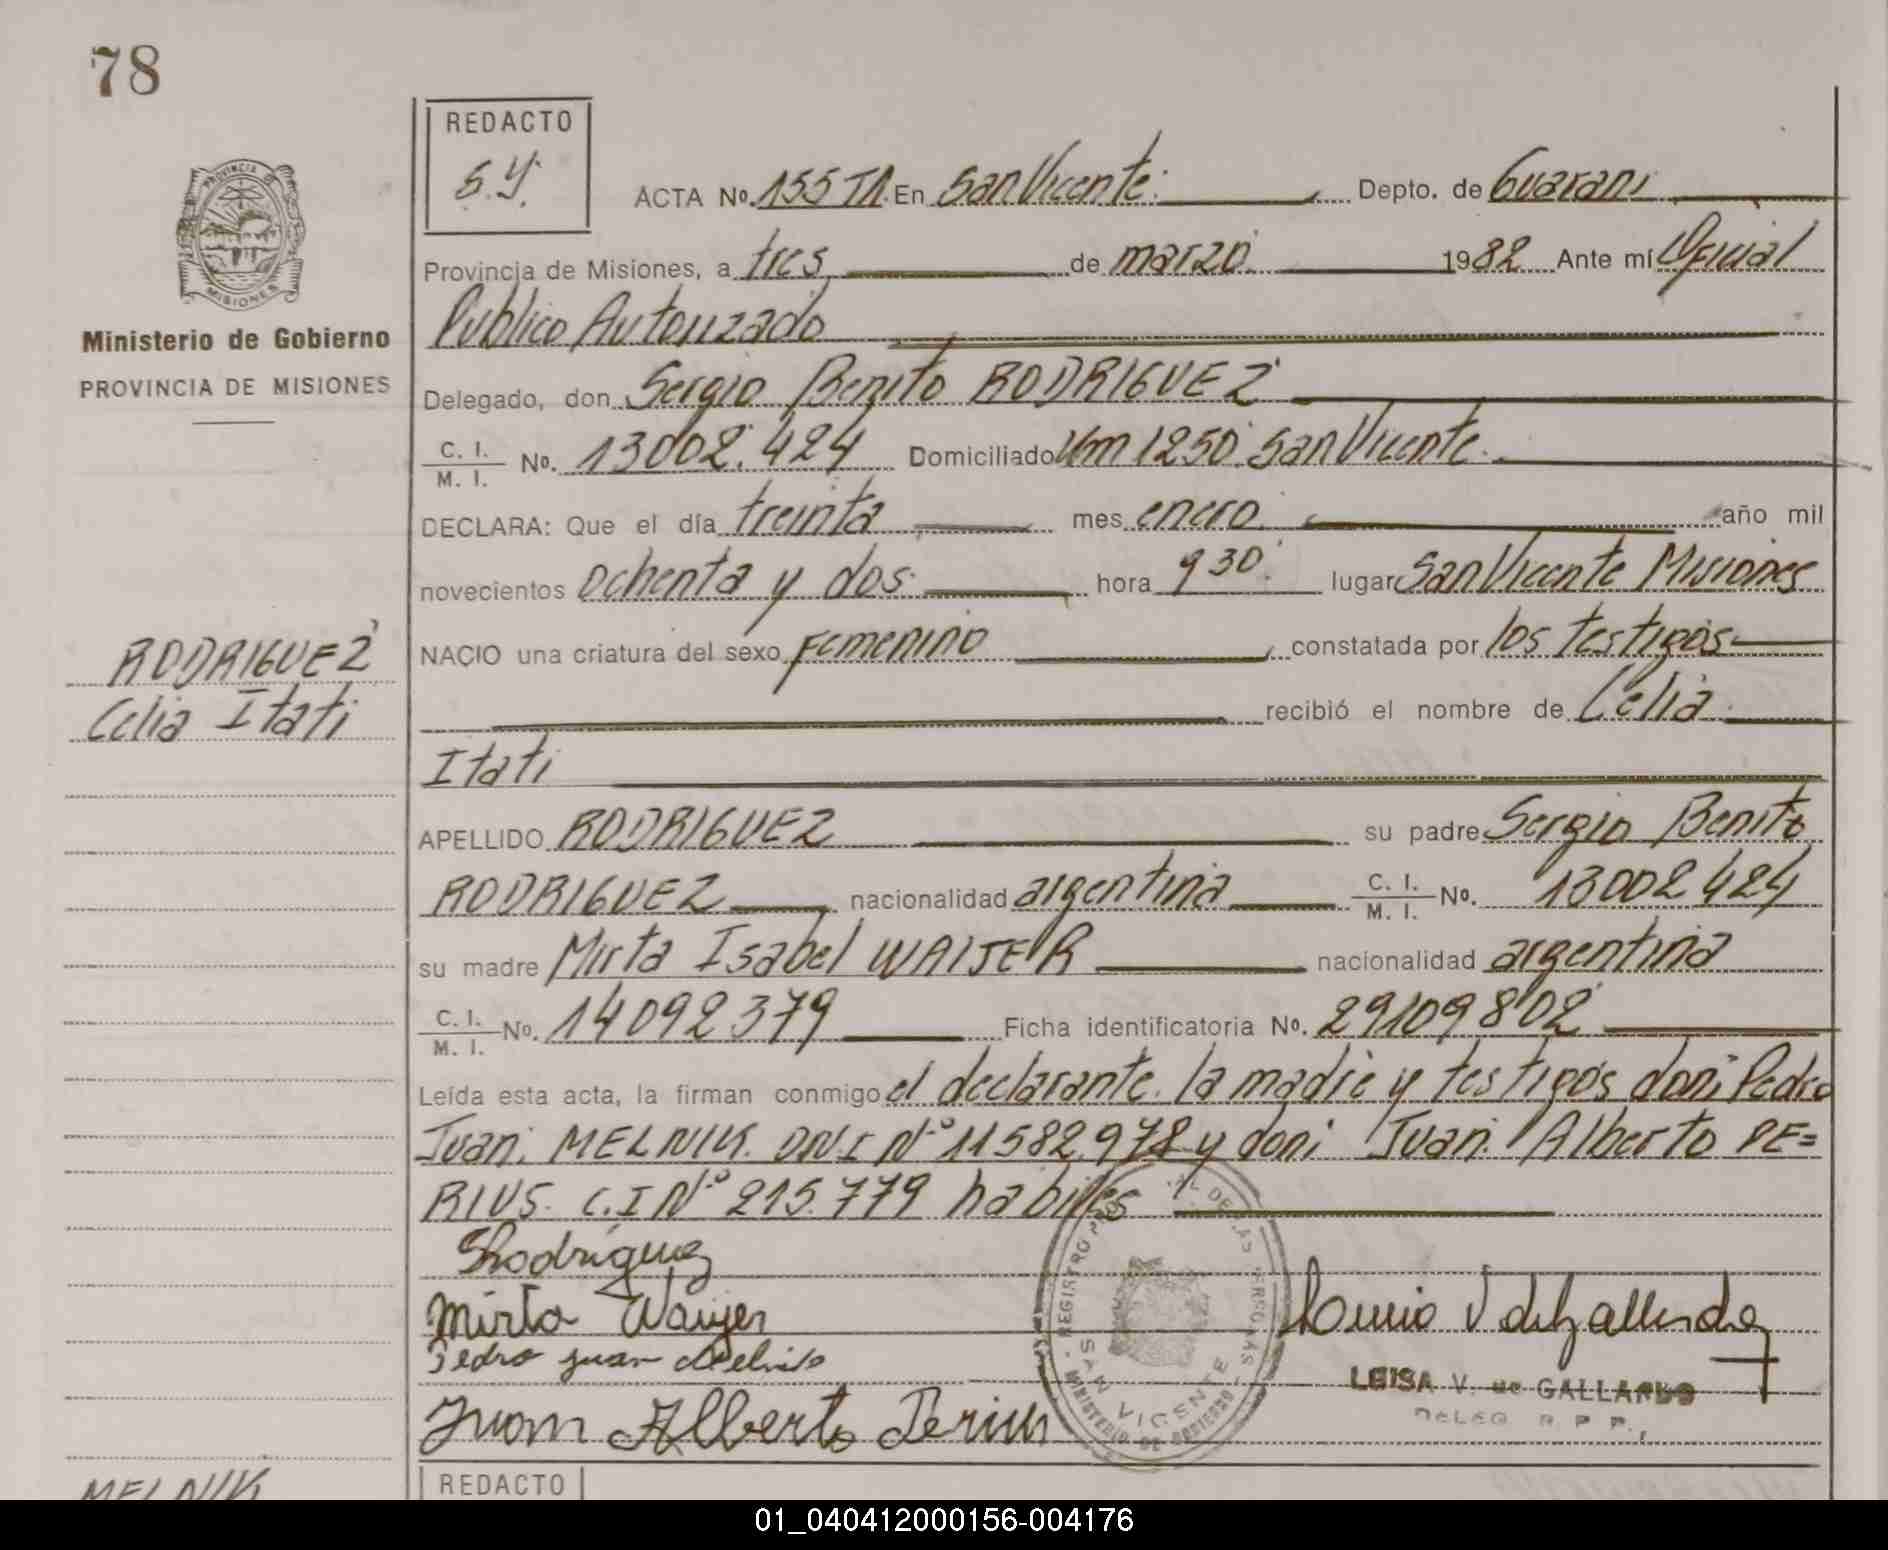 78
REDACTO
S.Y.
ACTA No. 155 T1. En San Vicente. Depto. de Guarani
PROVINCIA DE
MISIONES
Ministerio de Gobierno
PROVINCIA DE MISIONES
Provincia de Misiones, a tres de marzo 1982 Ante mí Oficial
Publico Autorizado
Delegado, don Sergio Benito RODRIGUEZ
C. I. / M. I. No. 13002.424 Domiciliado Km 1250 San Vicente.
DECLARA: Que el día treinta mes enero año mil
novecientos ochenta y dos hora 9 30 lugar San Vicente Misiones
NACIO una criatura del sexo Femenino constatada por los testigos
recibió el nombre de Celia
Itati
RODRIGUEZ
Celia Itati
APELLIDO RODRIGUEZ su padre Sergio Benito
RODRIGUEZ nacionalidad argentina C. I. / M. I. No. 13002424
su madre Mirta Isabel WAIJER nacionalidad argentina
C. I. / M. I. No. 14092379 Ficha identificatoria No. 29109802
Leída esta acta, la firman conmigo el declarante. la madre y testigos don Pedro
Juan. MELNIK. DN.I Nº 11582.978 y don Juan. Alberto PE=
RIUS. C.I Nº 215.779 habiles
SRodriguez
Mirta Waijer
Pedro Juan Melnik
Juan Alberto Perius
REGISTRO DE LAS PERSONAS
SAN VICENTE
MINISTERIO DE GOBIERNO
LEISA V. de GALLARDO
DELEG. R. P. P.
REDACTO
MELNIK
01_040412000156-004176